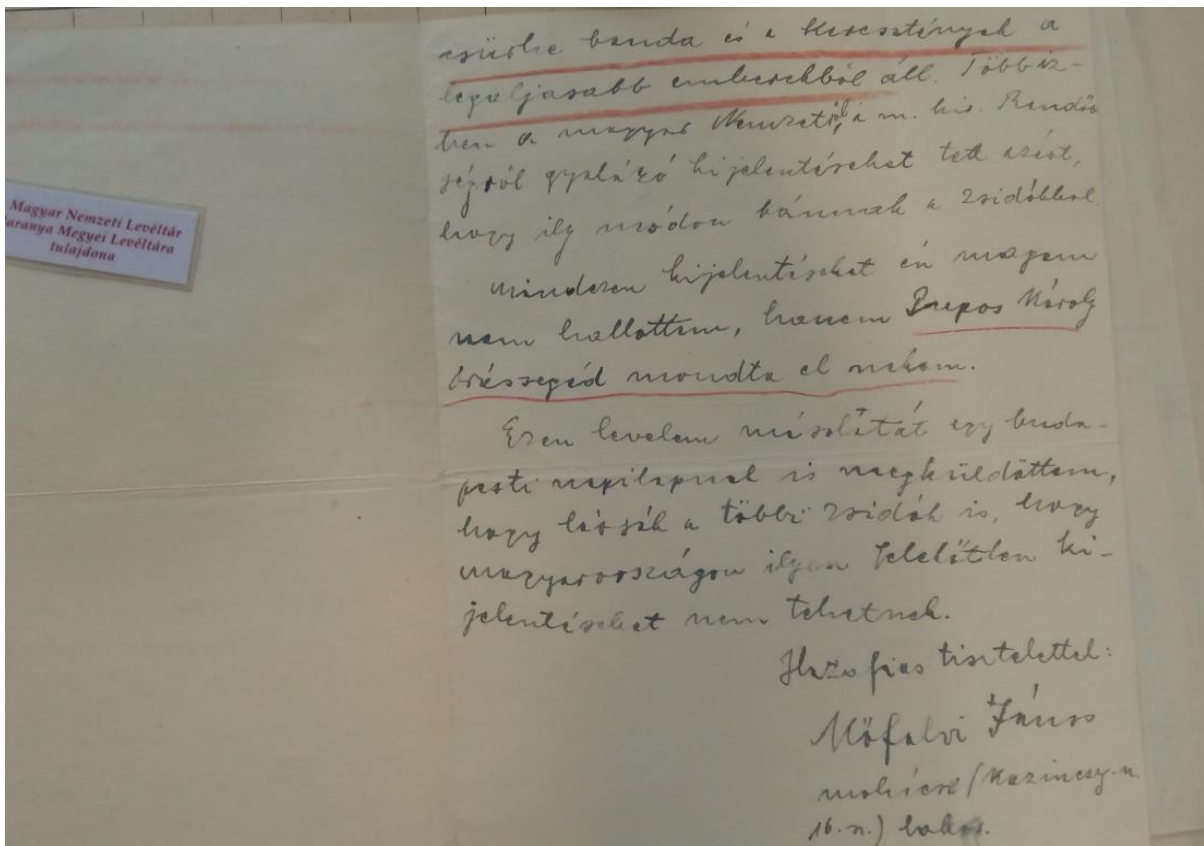 Magyar Nemzeti Levéltár
Baranya Megyei Levéltára
tulajdona
csürhe banda és a keresztények a
legaljasabb emberekből áll. Több íz-
ben a magyar Nemzetiről, a m. kir. Rendőr
ségről gyalázó kijelentéseket tett azért,
hogy ily módon bánnak a zsidókkal.
Mindezen kijelentéseket én magam
nem hallottam, hanem Prepos Károly
segéd mondta el nekem.
Ezen levelem másolatát egy buda-
pesti napilapnak is megküldöttem,
hogy lássák a többi zsidók is, hogy
magyarországon ilyen felelőtlen ki-
jelentéseket nem tehetnek.
Hazafias tisztelettel:
Mófalvi János
mohácsi (Kazinczy u.
16. sz.) lakos.